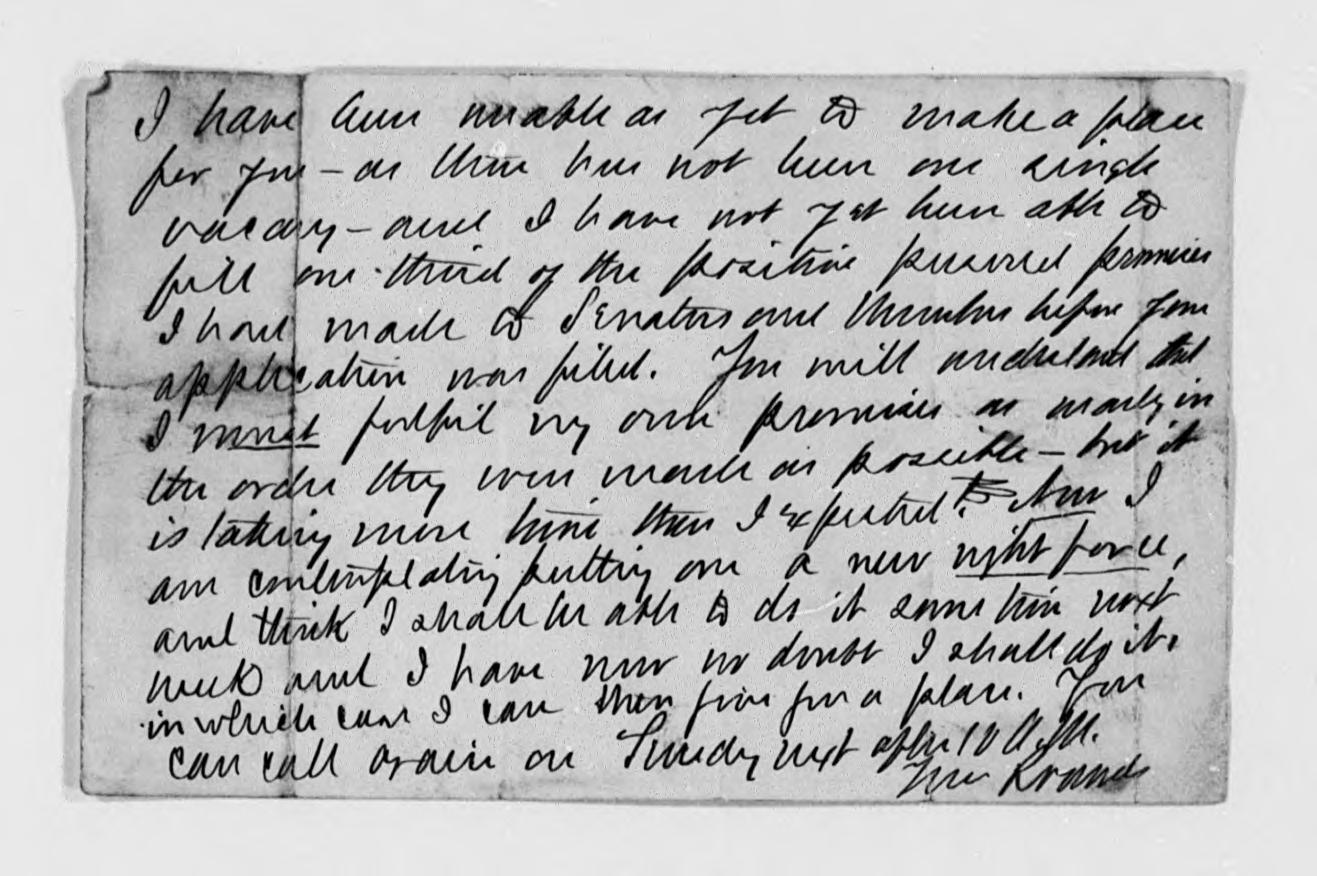 I have been unable as yet to make a place
for you – as there has not been one single
vacancy – and I have not yet been able to
fill one-third of the positive personal promises
I had made to Senators and Members before your
application was filed. You will understand that
I must fulfil my own promises as nearly in
the order they were made as possible – but it
is taking more time than I expected. Now I
am contemplating putting on a new night force,
and think I shall be able to do it some time next
week and I have now no doubt I shall do it,
in which case I can then give you a place. You
can call again on Sunday next after 10 A.M.